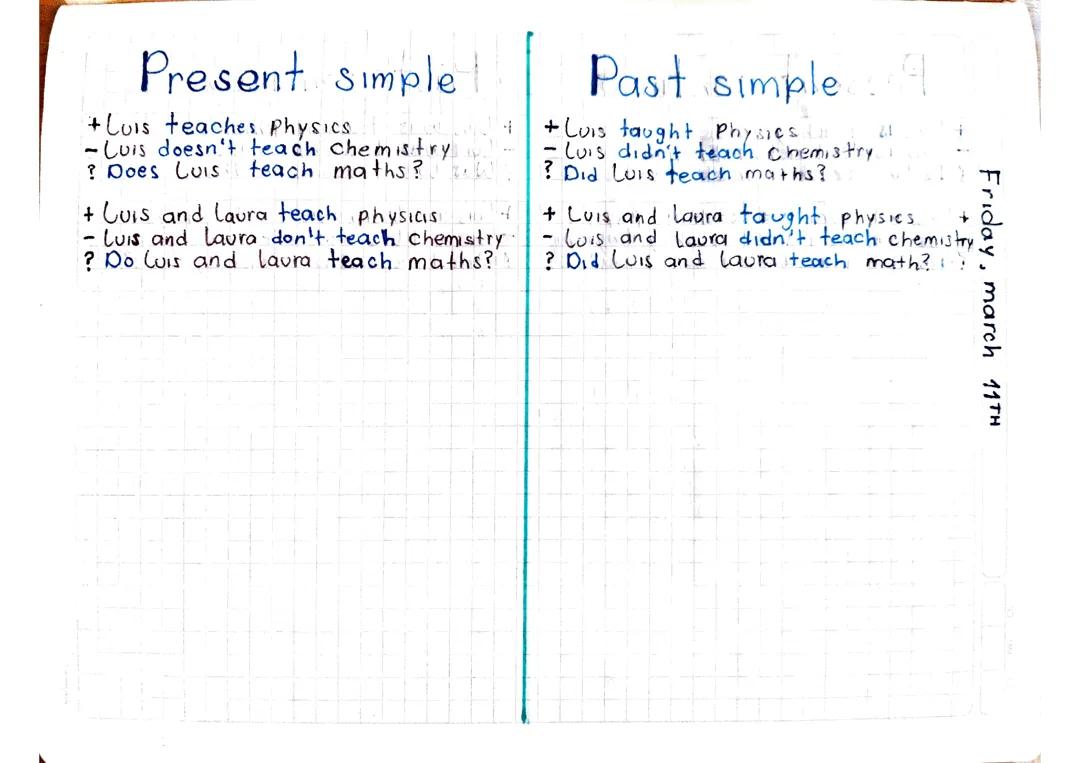 Present simple
+ Luis teaches physics
- Luis doesn't teach chemistry
? Does Luis teach maths?
+ Luis and Laura teach physicis
- Luis and Laura don't teach chemistry
? Do Luis and Laura teach maths?
Past simple
+ Luis taught physics
- Luis didn't teach chemistry
? Did Luis teach maths?
+ Luis and Laura taught physics
- Luis and Laura didn't teach chemistry
? Did Luis and Laura teach math?
Friday, march 11TH